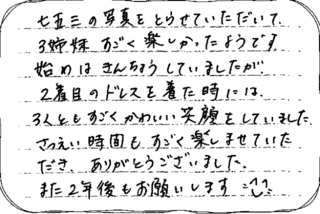 七五三の写真をとらせていただいて、
3姉妹すごく楽しかったようです
始めはきんちょうしていましたが、
2着目のドレスを着た時には、
3人ともすごくかわいい笑顔をしていました。
さつえい時間もすごく楽しませていた
だき、ありがとうございました。
また2年後もお願いします